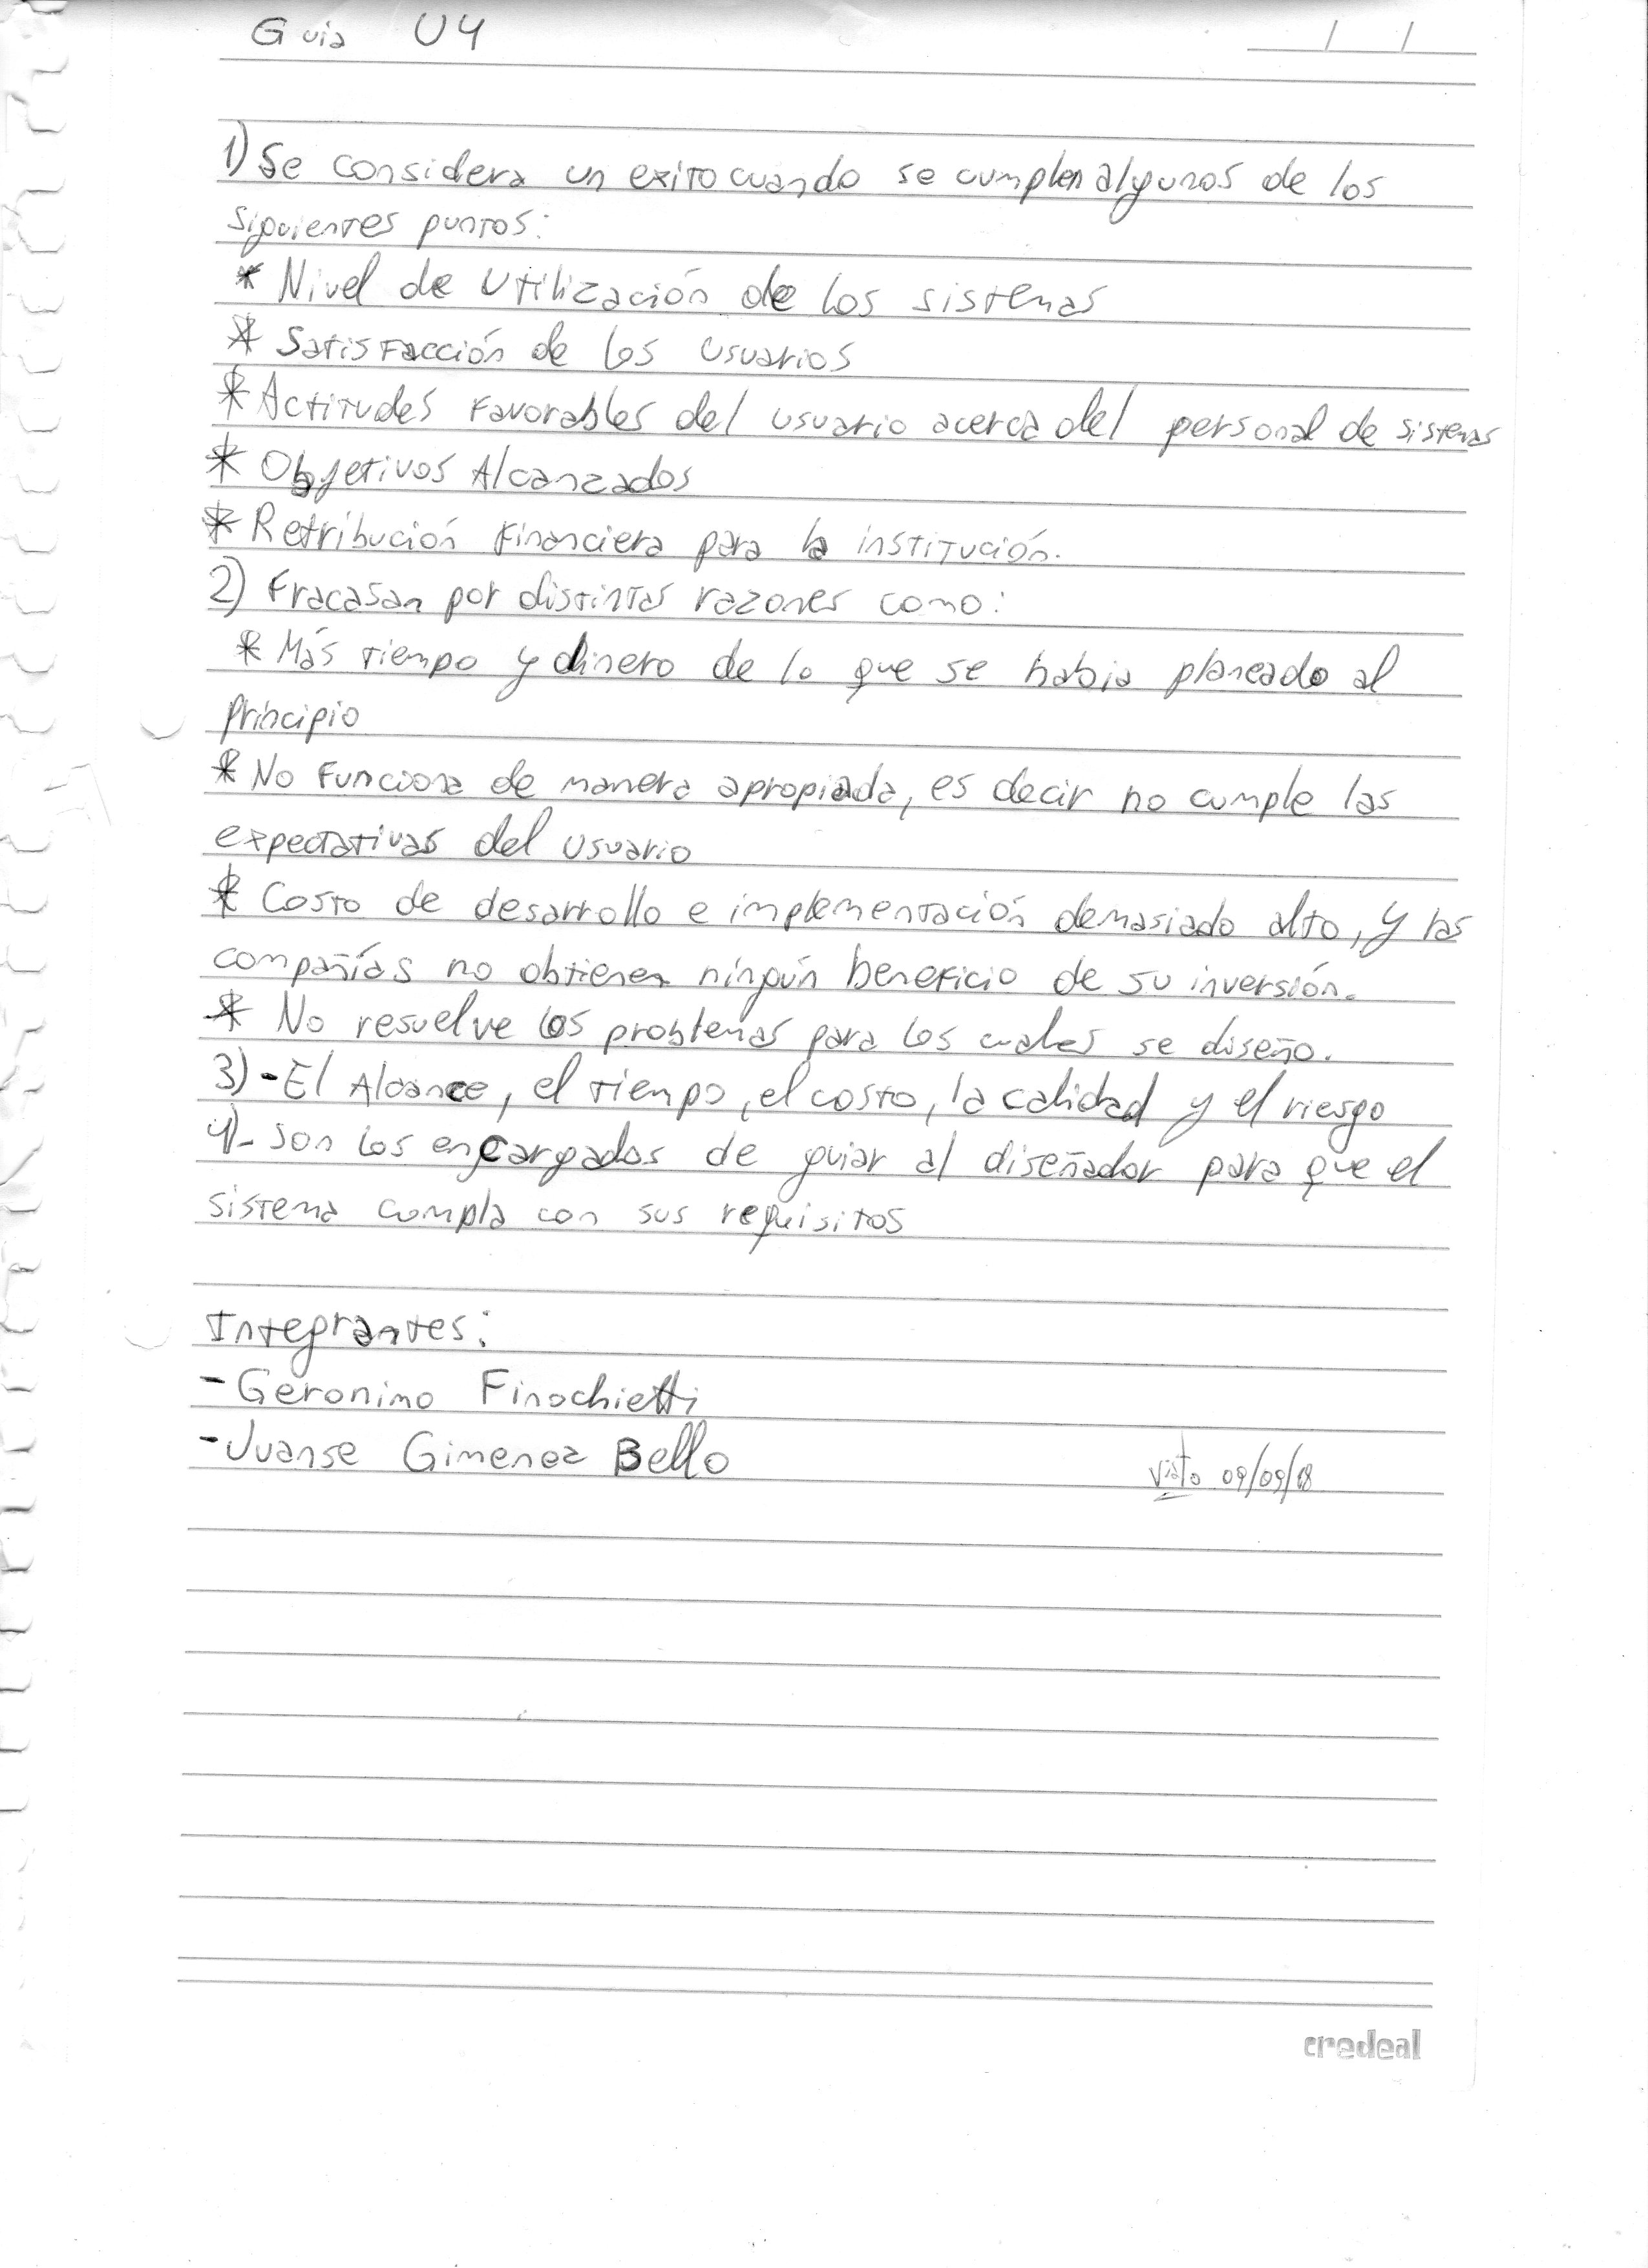 Guia U4
/ /
1) Se considera un exito cuando se cumplen algunos de los
siguientes puntos:
* Nivel de Utilización de los sistemas
* Satisfacción de los usuarios
* Actitudes Favorables del usuario acerca del personal de sistemas
* Objetivos Alcanzados
* Retribución Financiera para la institución.
2) Fracasan por distintas razones como:
* Más tiempo y dinero de lo que se habia planeado al
principio
* No Funciona de manera apropiada, es decir no cumple las
expectativas del usuario
* Costo de desarrollo e implementación demasiado alto, y las
compañías no obtienen ningún beneficio de su inversión.
* No resuelve los problemas para los cuales se diseño.
3)- El Alcance, el tiempo, el costo, la calidad y el riesgo
4)- Son los encargados de guiar al diseñador para que el
sistema cumpla con sus requisitos
Integrantes:
- Geronimo Finochietti
- Juanse Gimenez Bello
Visto 09/09/18
credeal